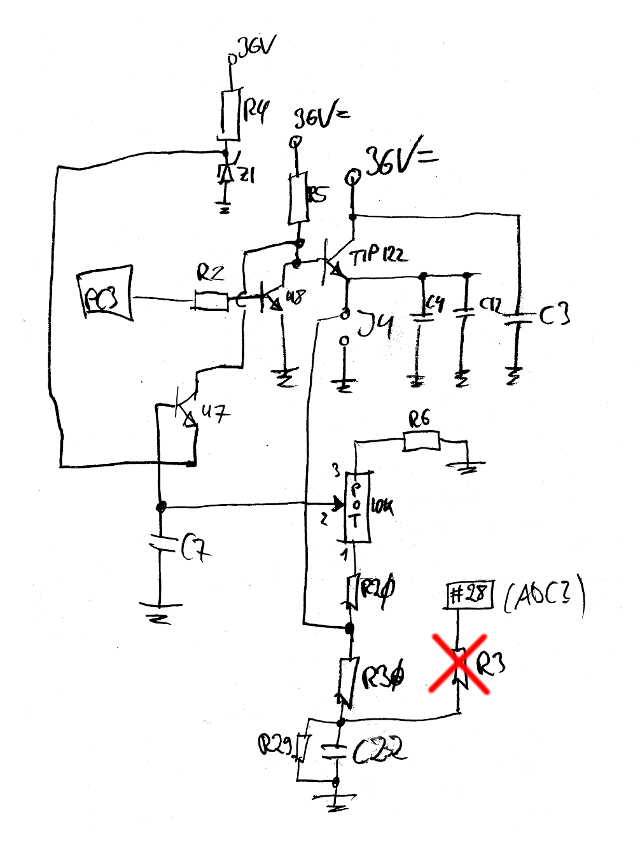 36V
R4
36V=
36V=
Z1
R5
TIP122
R2
PC3
U8
J4
C4
C12
C3
U7
R6
3
POT
10K
2
1
C7
R20
#28 (ADC3)
R3
R30
R29
C22